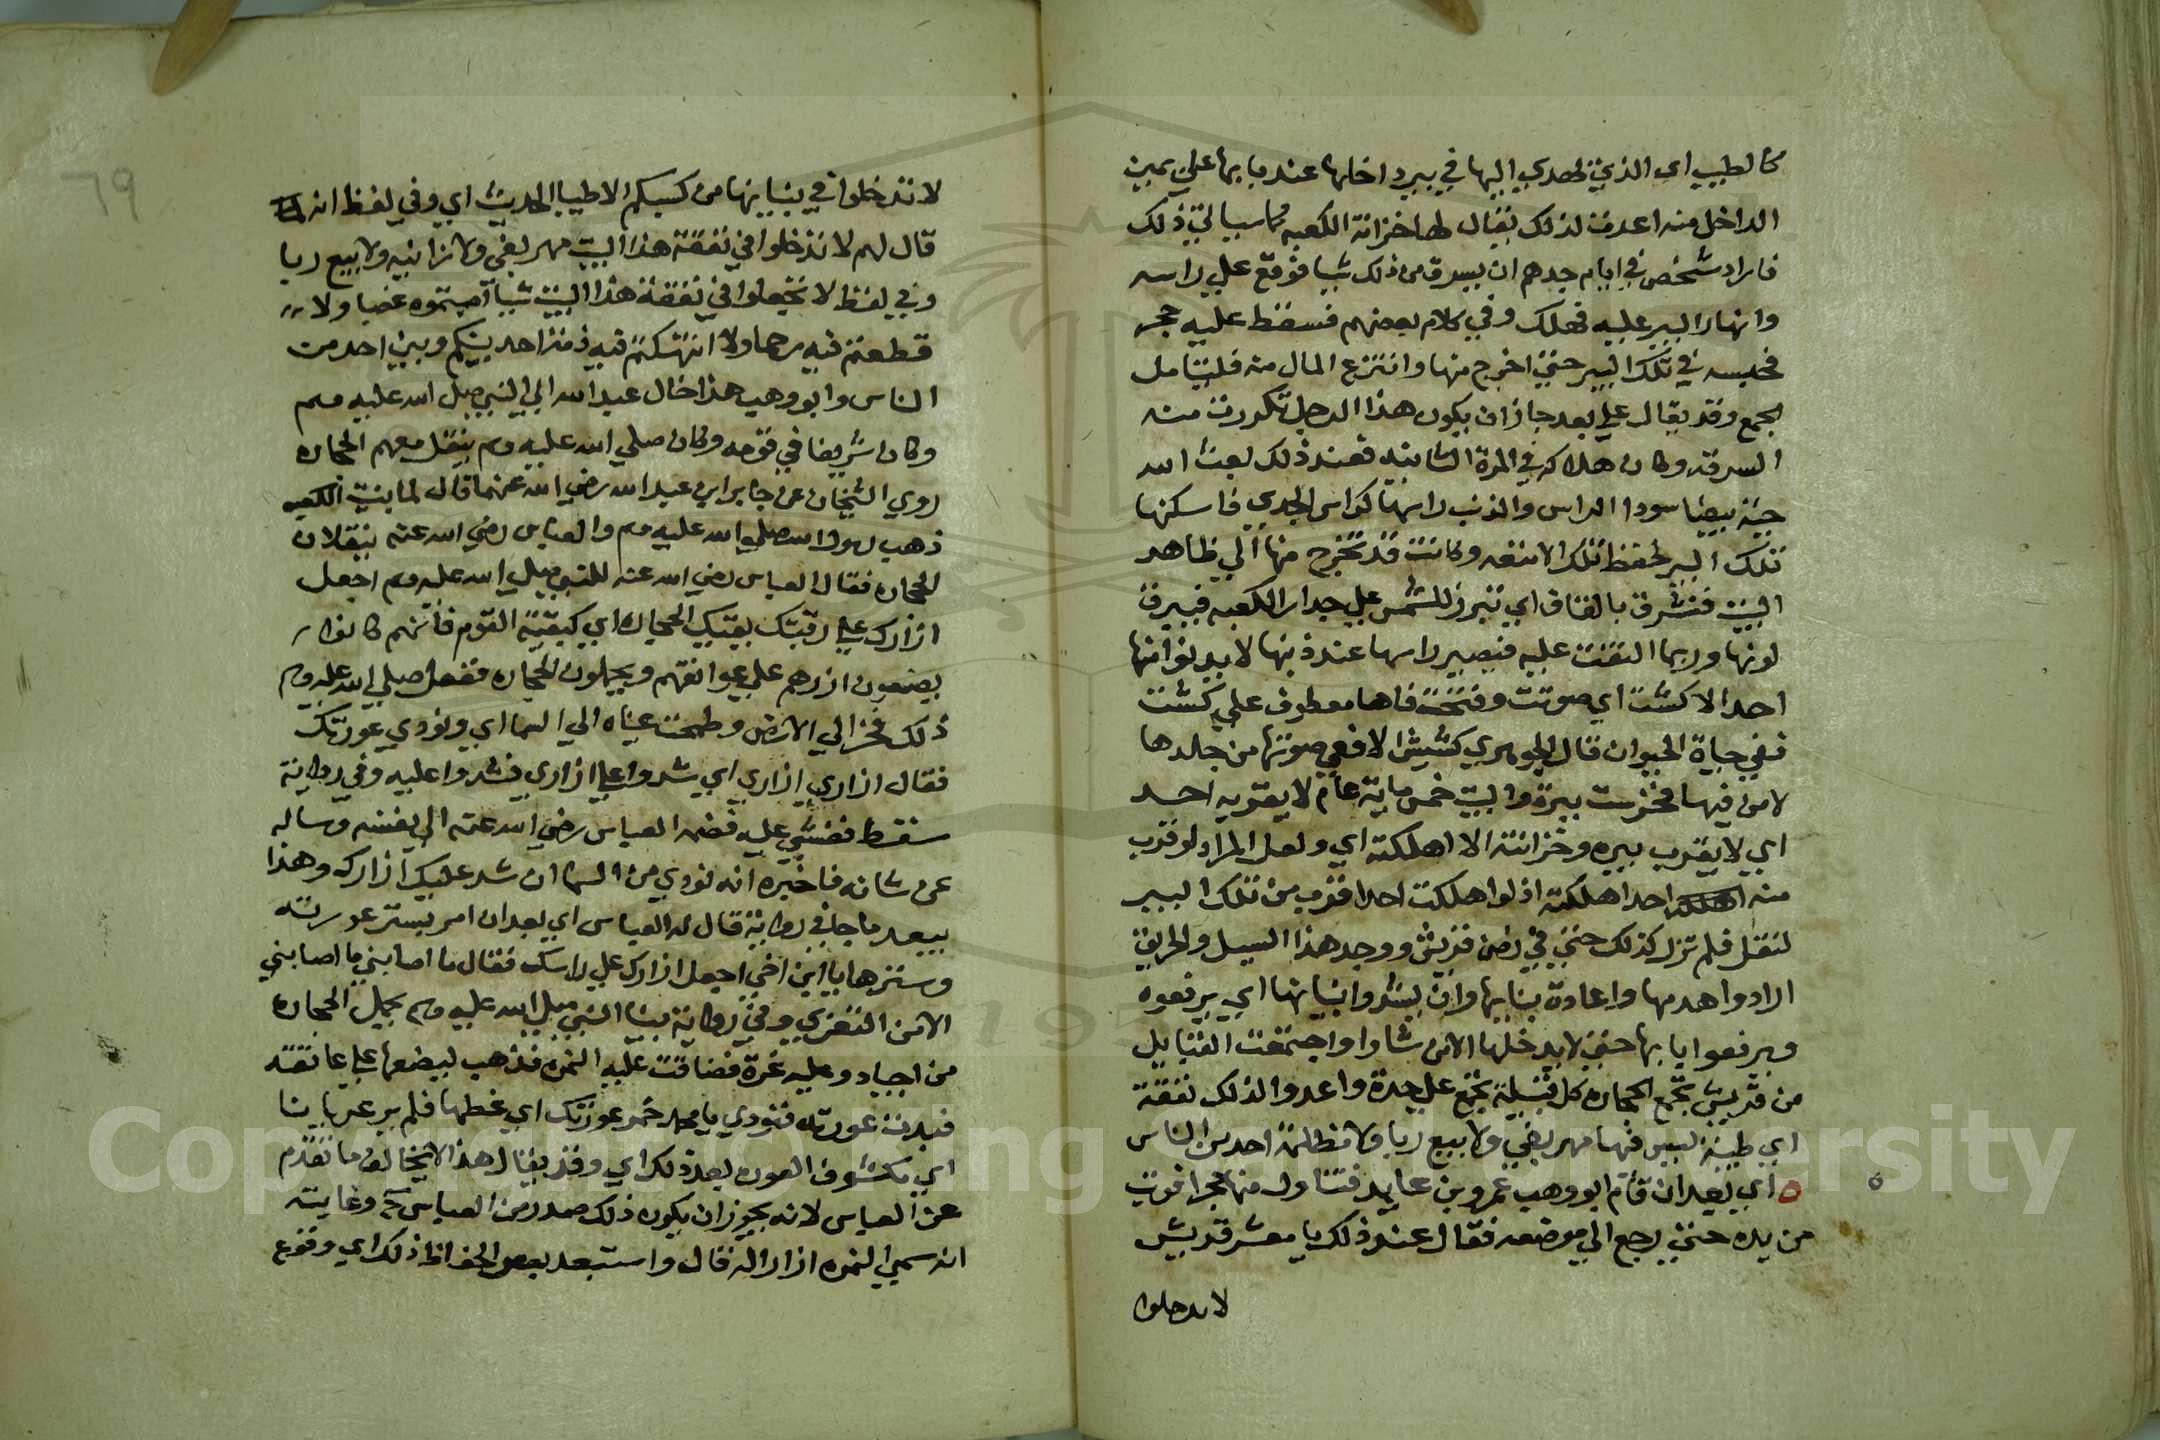 كالطيب اى الذي تهدي اليها في بير داخلها عند بابها علي يمين
الداخل منه اعدت لذلك يقال لها خزانة الكعبه كما سياتي ذلك
فاراد شخص في ايام جرهم ان يسرق من ذلك شيا فوقع علي راسه
وانهار البير عليه فهلك وفي كلام بعضهم فسقط عليه حجر
فحبسه في تلك البير حتي اخرج منها وانتزع المال منه فليتامل
الجمع وقد يقال علي بعد جاز ان يكون هذا الرجل تكررت منه
السرقه وكان هلاكه في المرة الثانيه فعند ذلك بعث الله
حية بيضا سودا الراس والذنب راسها كراس الجدي فاسكنها
تلك البير لحفظ تلك الامتعه وكانت قد تخرج منها الي ظاهر
البيت فتشرق بالقاف اي تبرز للشمس علي جدار الكعبه فيبرق
لونها وربما التفت عليه فيصير راسها عند ذنبها لا يدنوا منها
احد الا كشت اي صوتت وفتحت فاها معطوف علي كشت
ففي حياة الحيوان قال الجوهري كشيش الافعي صوتها من جلدها
لا من فيها فحرست بيره والبيت خمس ماية عام لا يقربه احد
اي لا يقرب بيره وخزانته الا اهلكته اي ولعل المراد لو قرب
منه احد اهلكته اذ لو اهلكت احدا قرب من تلك البير
لنقل فلم تزل كذلك حتي في زمن قريش ووجد هذا السيل والحريق
ارادوا هدمها واعادة بنايها وان يشدوا بنيانها اي يرفعوه
ويرفعوا بابها حتي لا يدخلها الا من شاوا واجتمعت القبايل
من قريش تجمع الحجاره كل قبيلة تجمع علي حدة واعدوا لذلك نفقة
اي طيبة ليس فيها مهر بغي ولا بيع ربا ولا مظلمة احد من الناس
ه اي بعد ان قام ابو وهب عمرو بن عايد فتناول منها حجرا فوثب
من يده حتي رجع الي موضعه فقال عند ذلك يا معشر قريش
لا تدخلوا
٦٩
لا تدخلوا في بنيانها من كسبكم الا طيبا الحديث اي وفي لفظ انه
قال لهم لا تدخلوا في نفقة هذا البيت مهر بغي ولا زانيه ولا بيع ربا
وفي لفظ لا تجعلوا في نفقة هذا البيت شيا اصبتموه غصبا ولا
قطعتم فيه رحما ولا انتهكتم فيه ذمة احد بينكم وبين احد من
الناس وابو وهب هذا خال عبد الله ابي النبي صلي الله عليه وسلم
وكان شريفا في قومه وكان صلي الله عليه وسلم ينقل معهم الحجاره
روي الشيخان عن جابر ابن عبد الله رضي الله عنهما قال لما بنيت الكعبه
ذهب رسول الله صلي الله عليه وسلم والعباس رضي الله عنه ينقلان
الحجاره فقال العباس رضي الله عنه للنبي صلي الله عليه وسلم اجعل
ازارك علي رقبتك يقيك الحجاره اي كبقية القوم فانهم كانوا
يضعون ازرهم علي عواتقهم ويحملون الحجاره ففعل صلي الله عليه وسلم
ذلك فخر الي الارض وطمحت عيناه الي السما اي ونودي عورتك
فقال ازاري ازاري اي شدوا علي ازاري فشدوا عليه وفي رواية
سقط فغشي عليه فضمه العباس رضي الله عنه الي نفسه وساله
عن شانه فاخبره انه نودي من السما ان شد عليك ازارك وهذا
يبعد ما جا في رواية قال له العباس اي بعد ان امر بستر عورته
وسترها يا ابن اخي اجعل ازارك علي راسك فقال ما اصابني ما اصابني
الا من التعري وفي رواية بينا النبي صلي الله عليه وسلم يحمل الحجاره
من اجياد وعليه نمرة فضاقت عليه النمره فذهب ليضعها علي عاتقه
فبدت عورته فنودي يا محمد خمر عورتك اي غطها فلم ير عريانا
اي مكشوف العوره بعد ذلك اي وقد يقال هذا لا يخالف ما تقدم
عن العباس لانه يجوز ان يكون ذلك صدر من العباس وغايته
انه سمي النمره ازارا له قال واستبعد بعض الحفاظ ذلك اي وقوع
Copyright © King Saud University